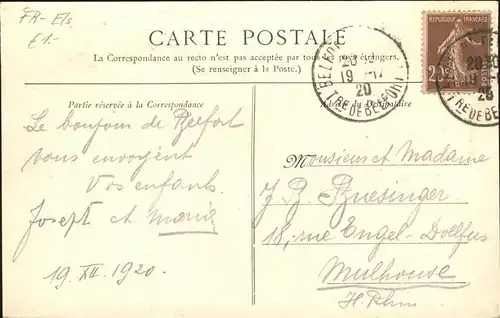 FR-Els
£1.-
CARTE POSTALE
La Correspondance au recto n'est pas acceptée par tous les pays étrangers.
(Se renseigner à la Poste.)
REPUBLIQUE FRANÇAISE
BELFORT
19 - 12
20
TRE DE BELFORT
20
19
20
TRE DE BE
Partie réservée à la Correspondance
Adresse du Destinataire
Le bonjour de Belfort
vous envoyent
Vos enfants
Joseph et Maria
19. XII. 1920.
Monsieur et Madame
J. B.
18, rue Engel-Dollfus
Mulhouse
H. Rhin